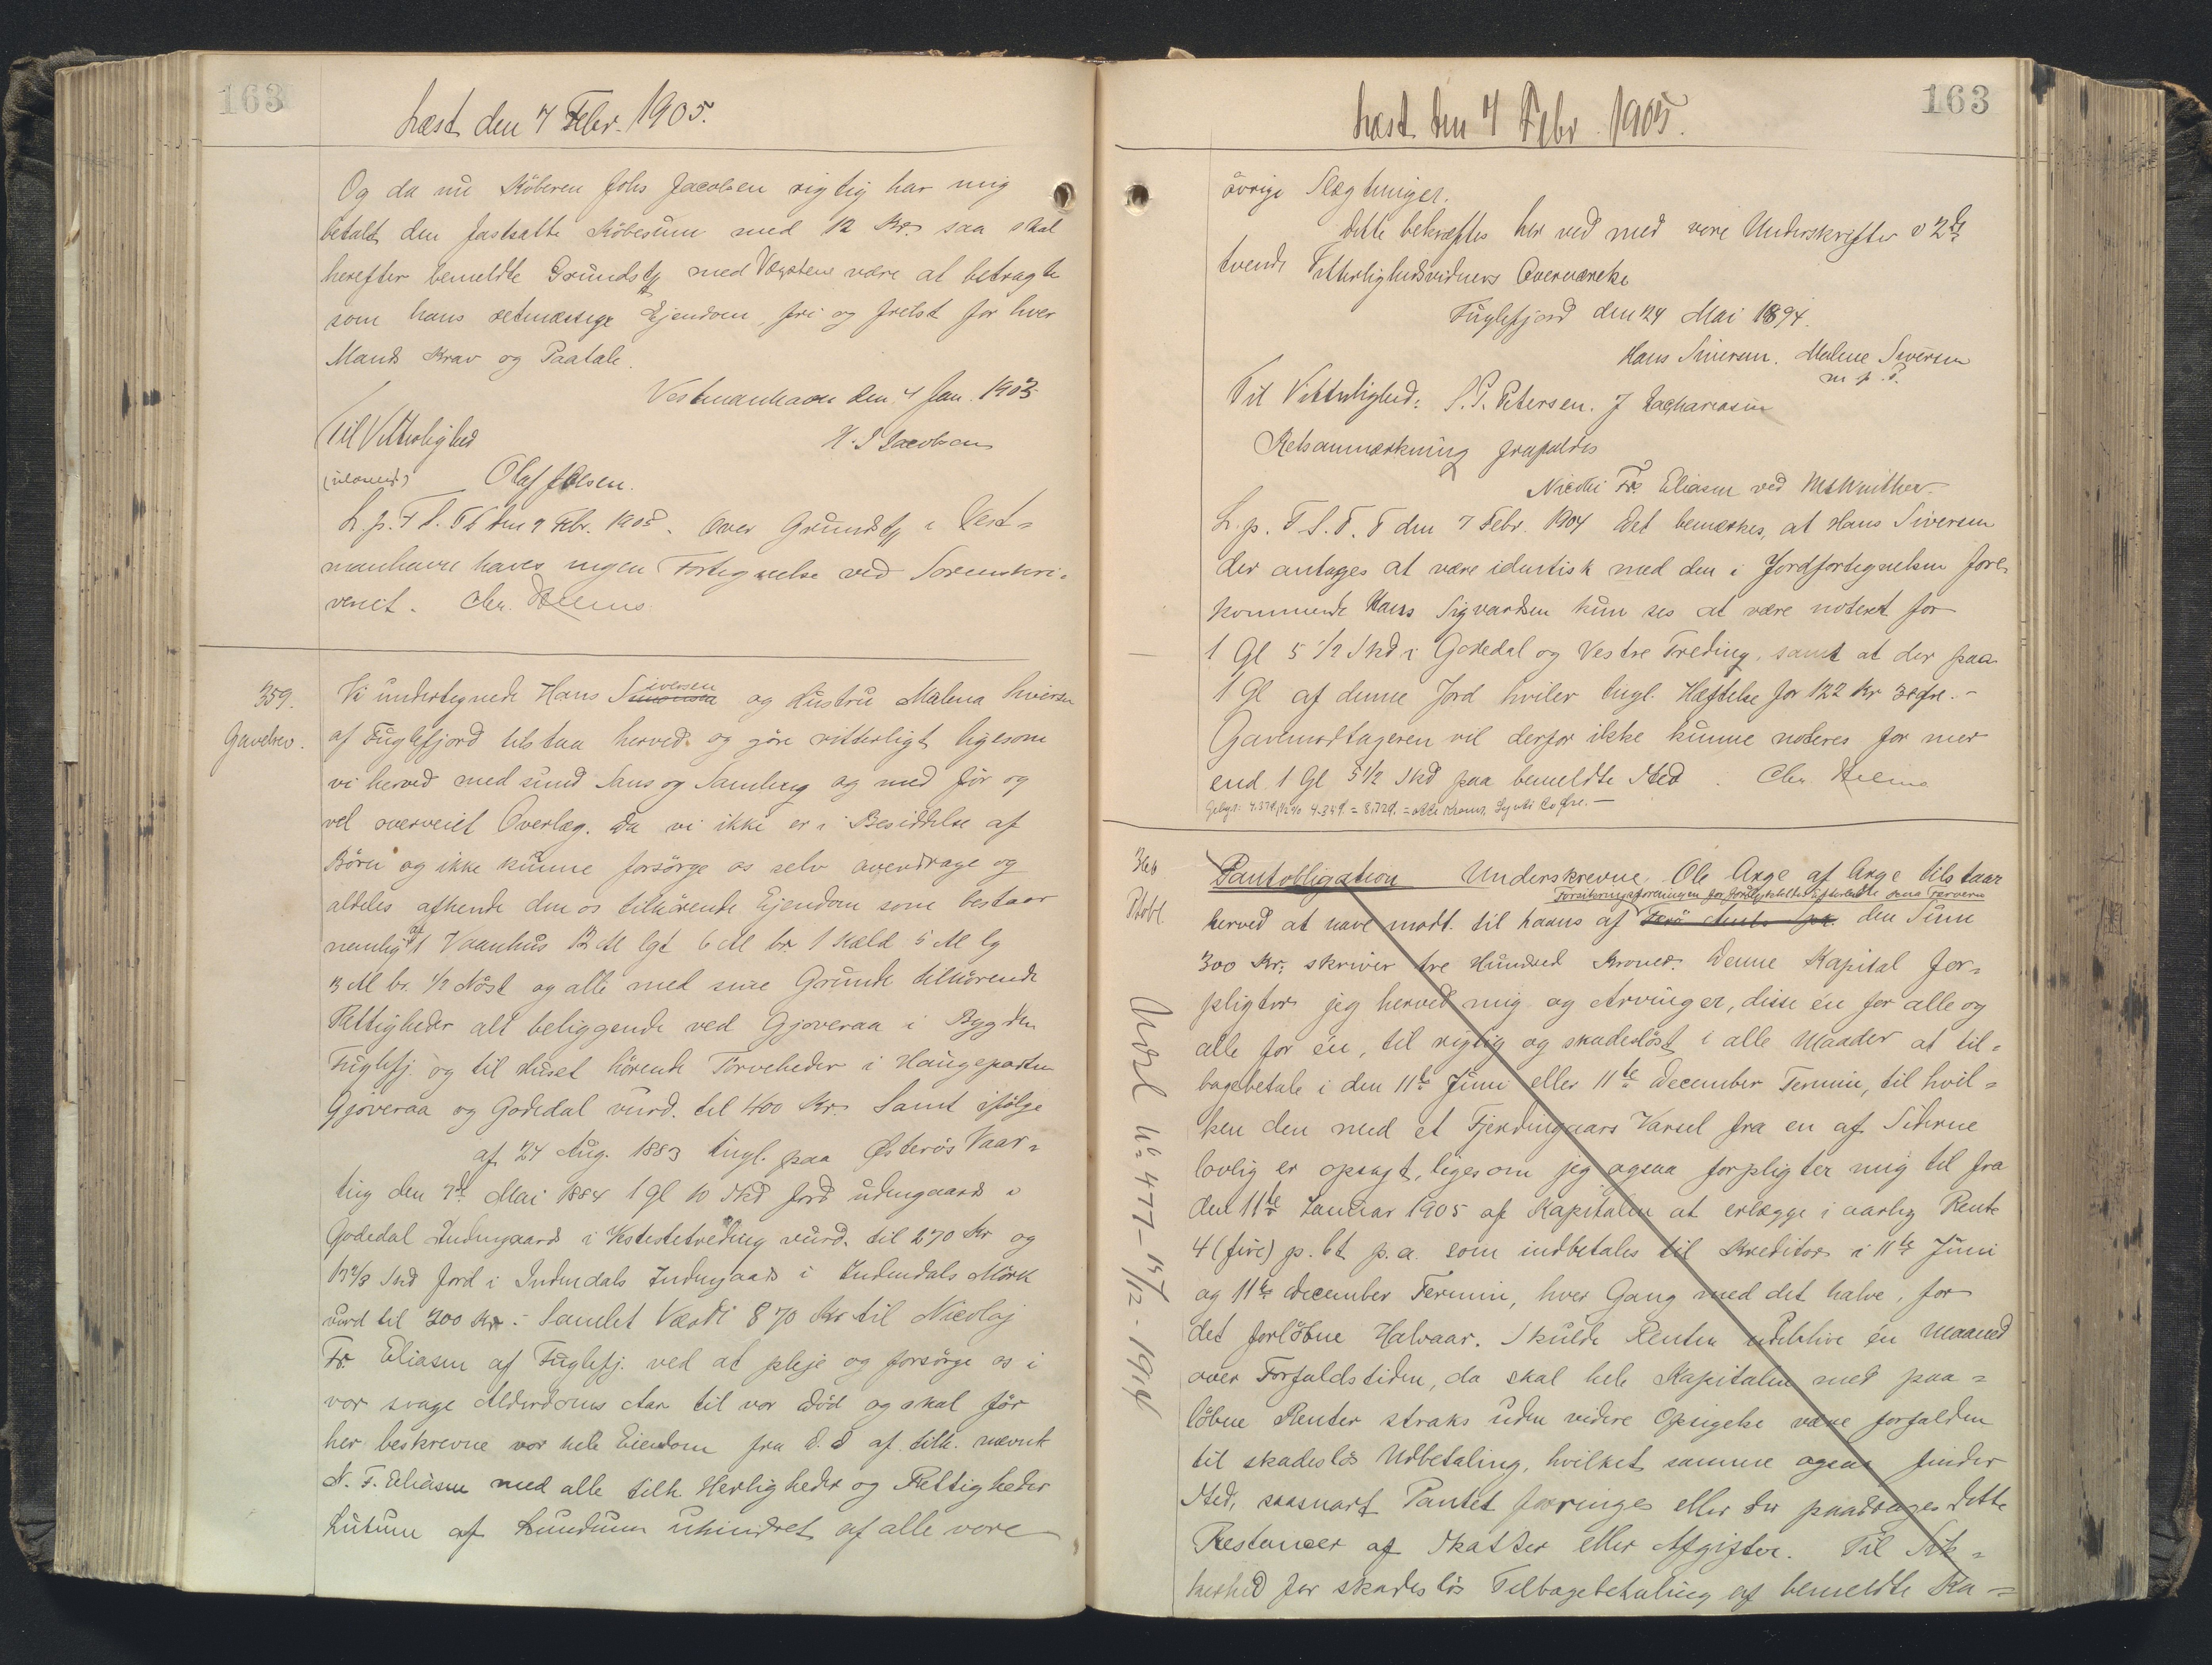 163
Læst den 7 Febr. 1905.
Og da nu Köberen Johs Jacobsen rigtig har mig
betalt den fastsatte Köbesum med 12 Kr. saa skal
herefter bemeldte Grundst med være at betragte
som hans retmæssige Ejendom fri og frelst for hver
Mands Krav og Paatale.
Vestmanhavn den 4 Jan. 1905
Til Vitterlighed H. J. Jacobsen
Olaf Olsen.
L. p. T S. T. T den 7 Febr. 1905. Over Grundst i Vest-
manhavn haves ingen Fortegnelse ved Sorenskri-
veriet. Chr.
359. Gavebrev.
Vi undertegnede Hans Siversen og Hustru Malena Siversen
af Fuglefjord tilstaa herved og göre vitterligt ligesom
vi herved med sund Sans og Samling og med för og
vel overveiet Overlæg. Da vi ikke er i Besiddelse af
Börn og ikke kunne forsörge os selv overdrage og
aldeles afhende den os tilhörende Ejendom som bestaar
nemlig af 1 Vaanhus 12 Al lgt 6 Al br. 1 Kæld 5 Al lg
3 Al br. 1/2 Nöst og alle med sine Grunde tilhörende
Rettigheder alt beliggende ved Gjoveraa i Bygden
Fuglefj. og til Huset hörende Törveheder i Haugeparten
Gjoveraa og Godedal vurd. til 400 Kr. Samt ifölge
af 24 Aug. 1883 tingl. paa Österös Vaar-
ting den 7de Mai 1884 1 Gl 10 Skd Jord udengaards i
Godedal Indengaards i Vestestetreding vurd. til 270 Kr og
13 2/3 Skd Jord i Indendals Indengaards i Indendals Mörk
vurd til 200 Kr. - Samlet Værdi 870 Kr til Nicolaj
Fr. Eliasen af Fuglefj. ved at pleje og forsörge os i
vor svage Alderdoms Aar til vor Död og skal för
her beskrevne vor hele Eiendom fra D. D af tilh. nævnte
N. F. Eliasen med alle tilh Herligheder og Rettigheder
Lutum af Lundum uhindret af alle vore
163
Læst den 7 Febr. 1905.
övrige Slægtninger.
Dette bekræftes her ved med vore Underskrifter i 2de
tvende Vitterlighedsvidners Overværelse
Fuglefjord den 24 Mai 1894.
Hans Siversen. Malene Siversen
m. p. P.
Til Vitterlighed: P. P. Petersen. J Zachariasen
Retsanmærkning frafaldes
Nicolai Fr. Eliasen ved M Winther.
L. p. T. S. T. T den 7 Febr. 1904 Det bemærkes, at Hans Siversen
der antages at være identisk med den i Jordfortegnelsen fore
kommende Hans Sigvardsen kun ses at være noteret for
1 Gl 5 1/2 Skd i Godedal og Vestre Treding, samt at der paa
1 Gl af denne Jord hviler tingl. Hæftelse for 122 Kr 30 Öre. -
Gavemodtageren vil derfor ikke kunne noteres for mer
end 1 Gl 5 1/2 Skd paa bemeldte Sted. Chr.
360
Pantobligation Underskrevne Ole Arge af Arge tilstaar
Forsikringsforeningen for Efterladte paa Færöern
herved at have modt. til Laans af Færö Amts den Sum
300 Kr, skriver tre Hundred Kroner. Denne Kapital for-
pligter jeg herved mig og Arvinger, disse én for alle og
alle for én, til rigtig og skadeslöst i alle Maader at til-
bagebetale i den 11te Juni eller 11te December Termin, til hvil-
ken den med et Fjerdingaars Varsel fra en af Siderne
lovlig er opsagt, ligesom jeg ogsaa forpligter mig til fra
den 11te Januar 1905 af Kapitalen at erlægge i aarlig Rente
4 (fire) p. Ct p. a. som indbetales til Kreditor i 11te Juni
og 11te December Termin, hver Gang med det halve, for
det forlöbne Halvaar. Skulde Renten udeblive én Maaned
over Forfaldstiden, da skal hele Kapitalen med paa-
löbne Renter straks uden videre Opsigelse være forfalden
til skadeslös Udbetaling, hvilket samme ogsaa finder
Sted, saasnart Pantet forringes eller der paadrages dette
Restancer af Skatter eller Afgifter. Til Sik-
kerhed for skadeslös Tilbagebetaling af bemeldte Ka-
Udsl No 477 - 15/12 - 1916